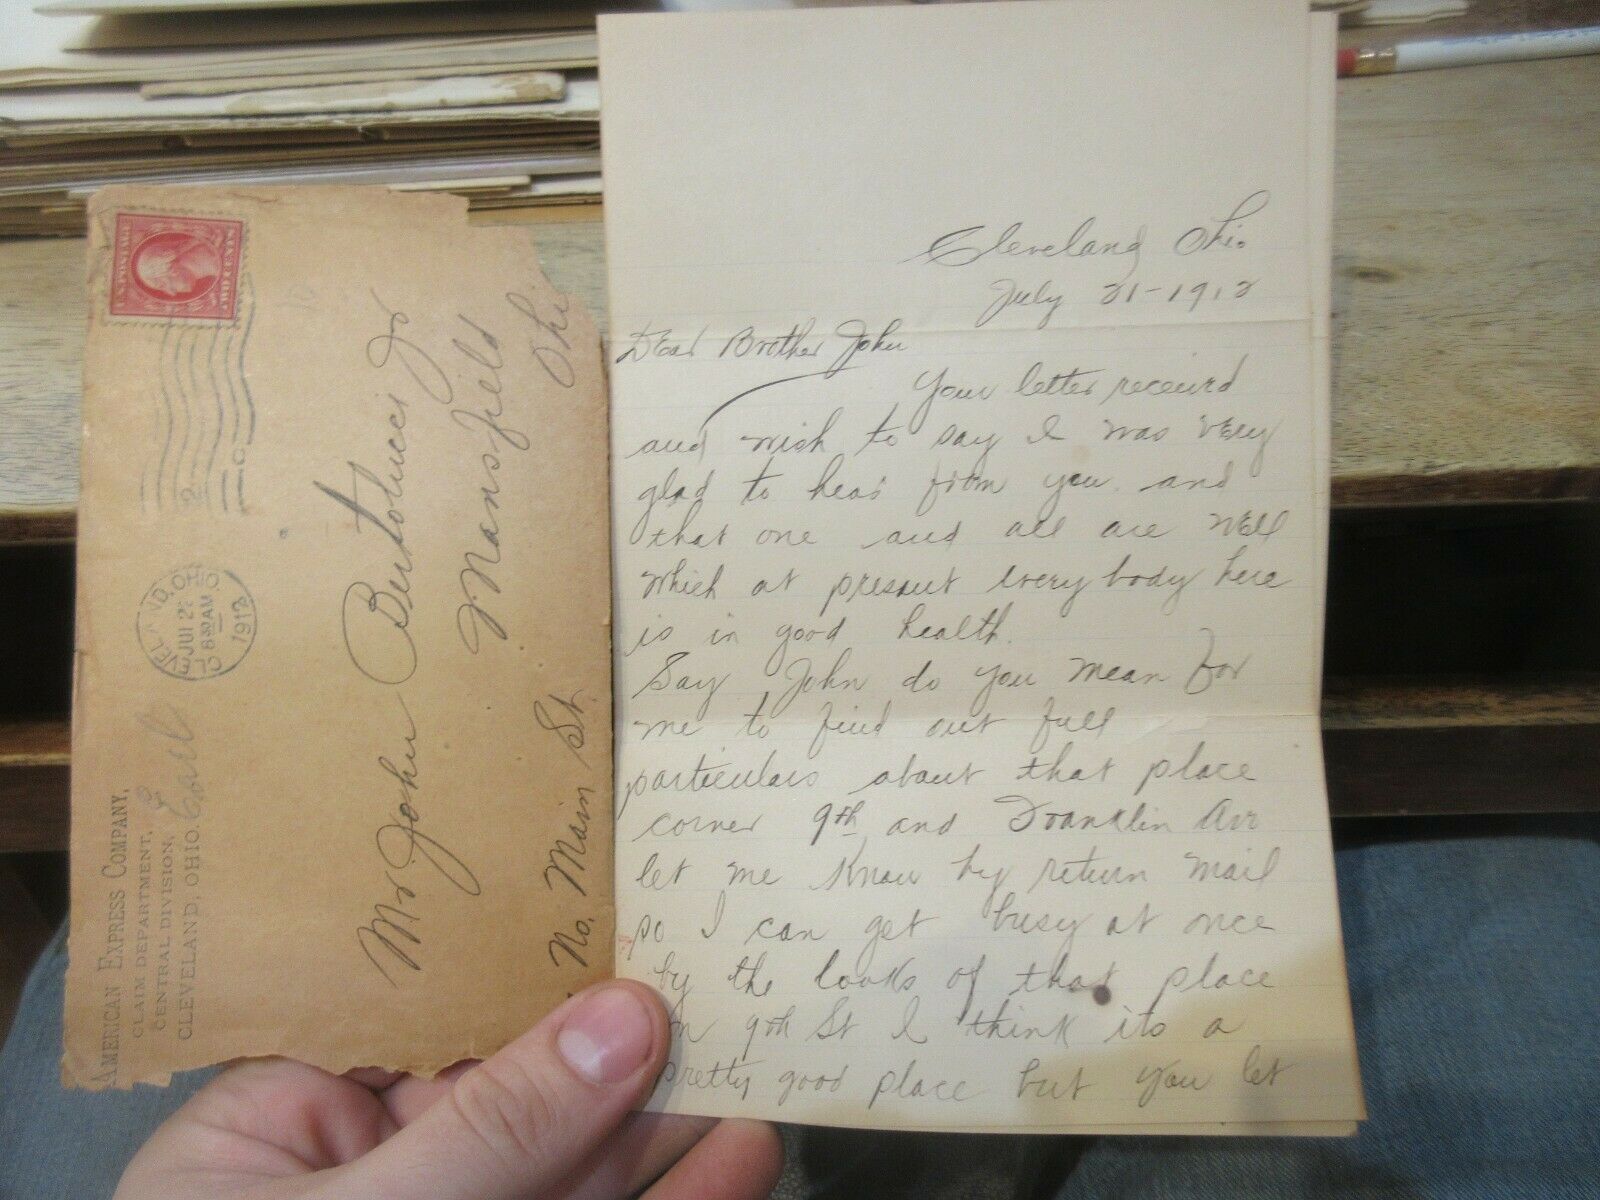 U.S. POSTAGE
TWO CENTS
CLEVELAND, OHIO
JUL 2
8 30 AM
1912
AMERICAN EXPRESS COMPANY,
CLAIM DEPARTMENT,
CENTRAL DIVISION,
CLEVELAND, OHIO.
Earl
Mr John Bertolucci Jr
Mansfield
Ohi
No. Main St.
Cleveland Ohio
July 21-1912
Dear Brother John
Your letter receivrd
and wish to say I was very
glad to hear from you and
that one and all are well
which at present every body here
is in good health.
Say John do you mean for
me to find out full
particulars about that place
corner 9th and Franklin Ave
let me know by return mail
so I can get busy at once
by the looks of that place
on 9th St I think its a
pretty good place but you let